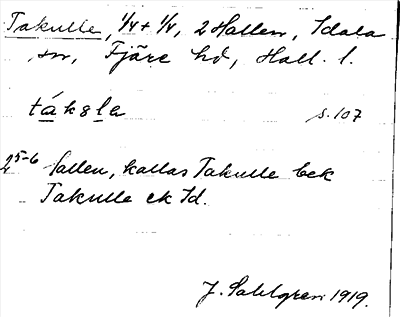 Takulle, 1/4 + 1/4, 2 Hallen, Idala
sn, Fjäre hd, Hall. l.
tákəla s. 107
25-6 Sallen, kallas Takulle bek
Takulle ek Id.
J. Sahlgren 1919.